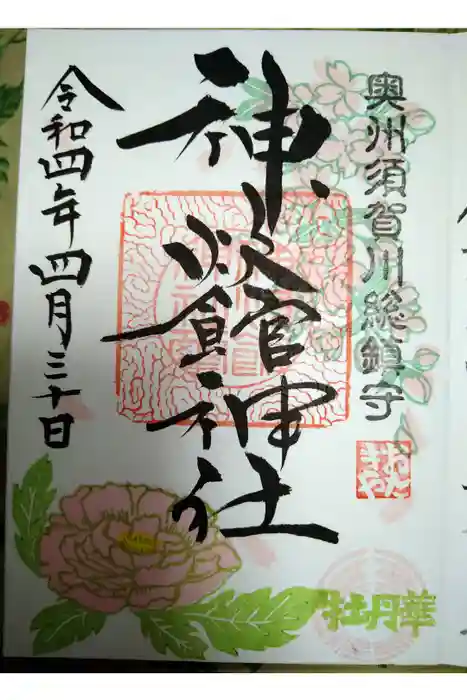 奥州須賀川総鎮守
おた
きや
神炊館神社
令和四年四月三十日
牡丹華